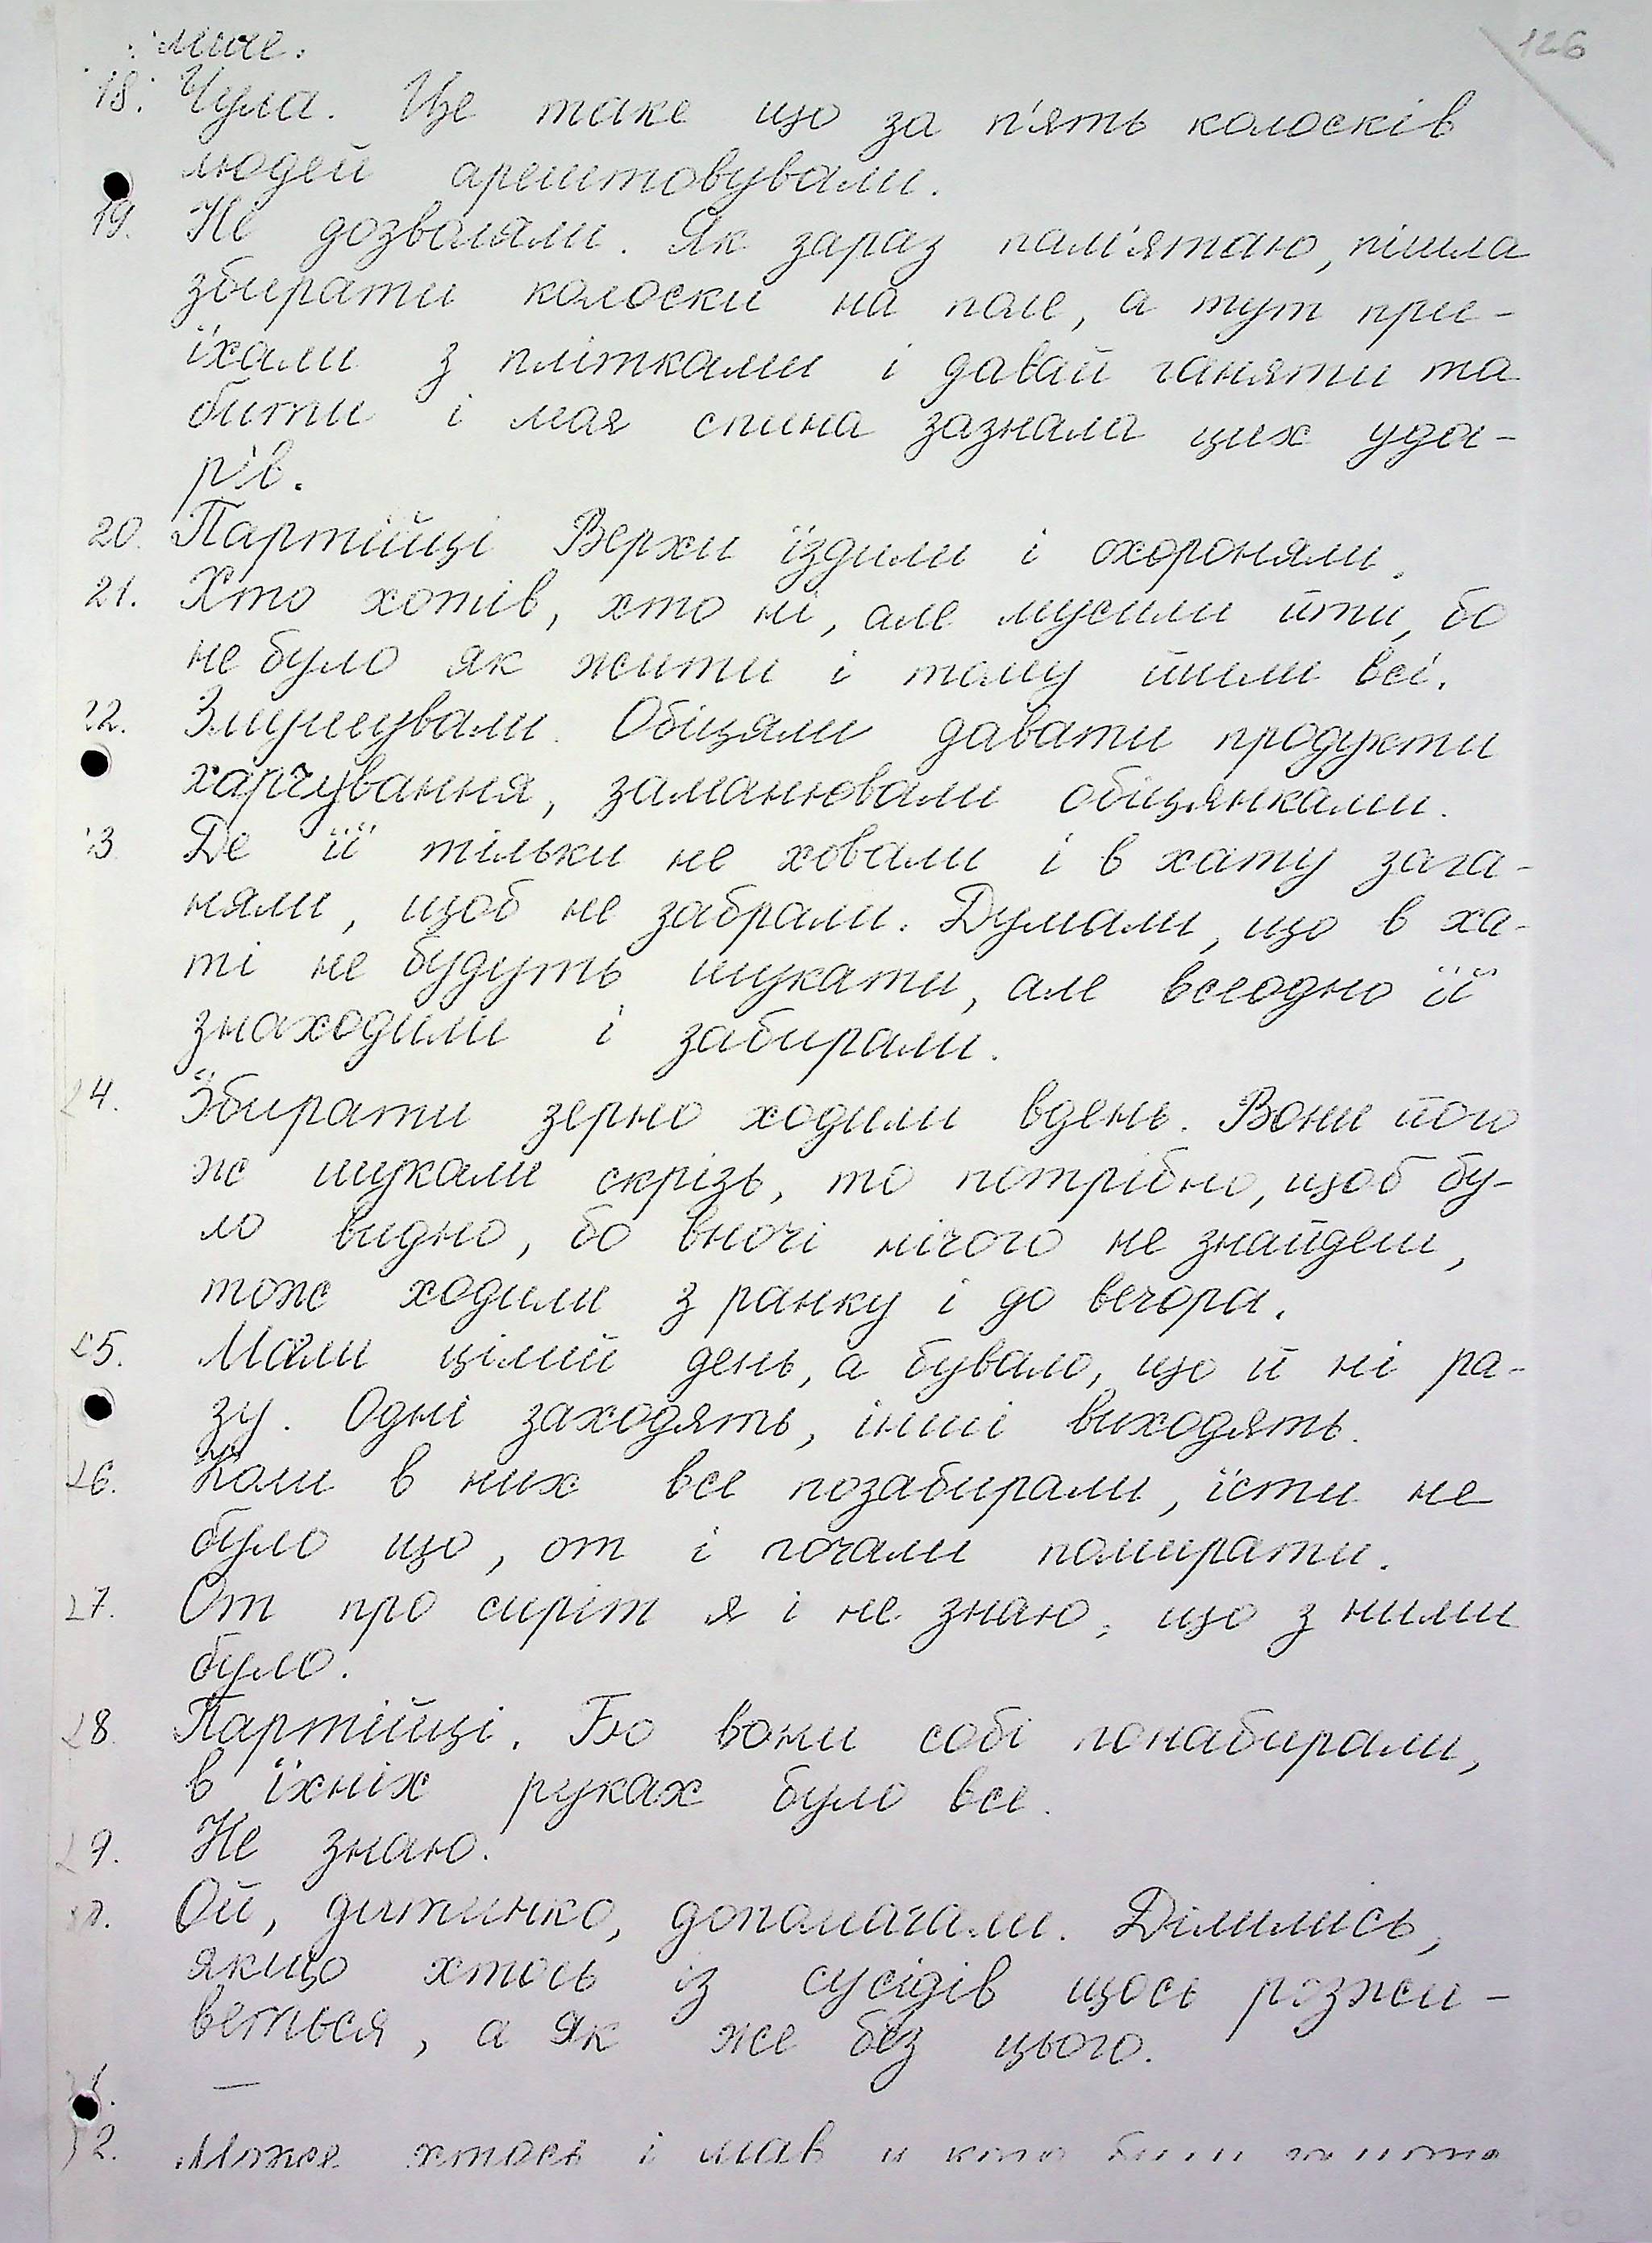 126
миле.
18. Чула. Це таке що за п'ять колосків
людей арештовували.
19. Не дозваляли. Як зараз пам'ятаю, пішла
збирати колоски на поле, а тут при-
їхали з плітками і давай ганяти та
бити і моя спина зазнала цих уда-
рів.
20. Партійці Верхи їздили і охороняли.
21. Хто хотів, хто ні, але мусили йти, бо
не було як жити і тому йшли всі.
22. Змушували. Обіцяли давати продукти
харчування, заманювали обіцянками.
23. Де її тільки не ховали і в хату зага-
няли, щоб не забрали. Думали, що в ха-
ті не будуть шукати, але всеодно її
знаходили і забирали.
24. Збирати зерно ходили вдень. Вони його
ж шукали скрізь, то потрібно, щоб бу-
ло видно, бо вночі нічого не знайдеш,
тож ходили з ранку і до вечора.
25. Мали цілий день, а бувало, що й ні ра-
зу. Одні заходять, інші виходять.
26. Коли в них все позабирали, їсти не
було що, от і почали помирати.
27. От про сиріт я і не знаю, що з ними
було.
28. Партійці. Бо вони собі понабирали,
в їхніх руках було все.
29. Не знаю.
30. Ой, дитинко, допомагали. Ділились,
якщо хтось із сусідів щось розжи-
веться, а як же без цього.
31. —
32. Може хтось і мав у кого були